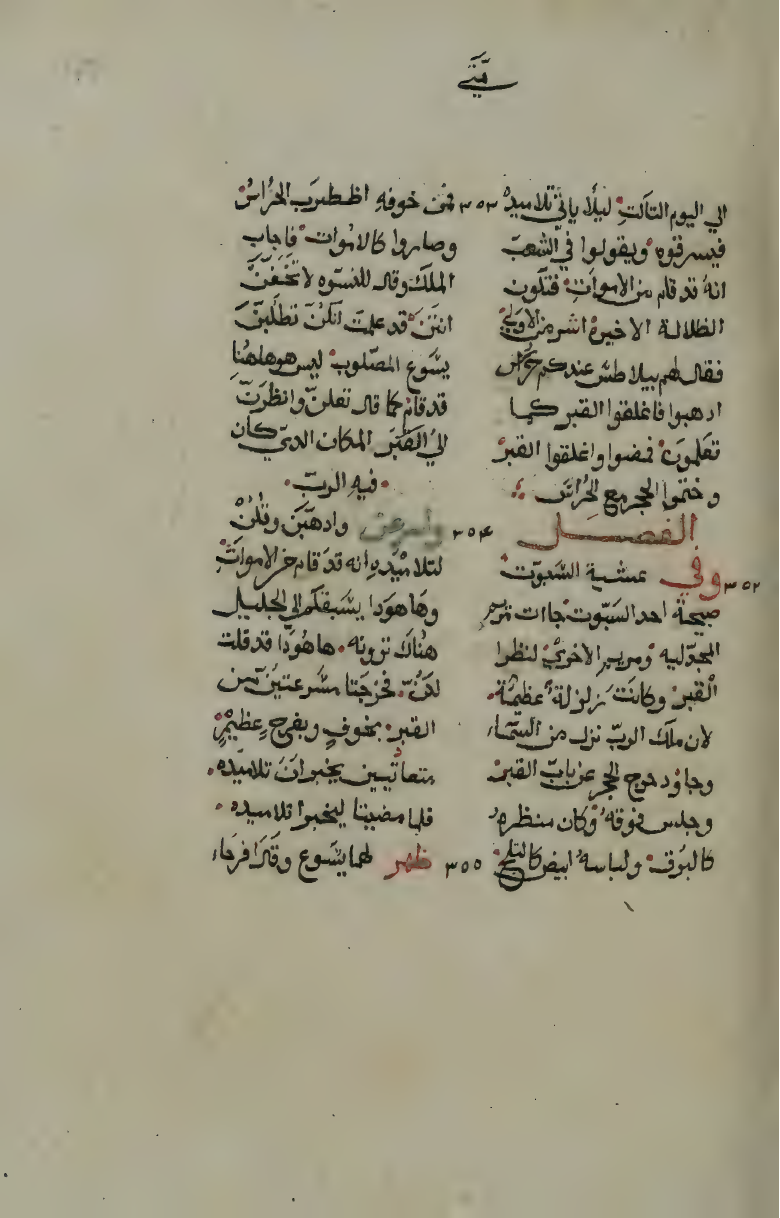 متي
الي اليوم التالت ليلا ياتي تلاميده
فيسرقوه ويقولوا في الشعب
انه قد قام من الاموات فتكون
الظلالة الاخيرة اشر من الاولي
فقال لهم بيلاطس عندكم حراس
ادهبوا فاغلقوا القبر كما
تعلمون فمضوا واغلقوا القبر
وختموا الحجر مع الحراس
الفصل
٣٥٢ وفي عشية السبوت
صبحة احد السبوت جاات مريم
المجدليه ومريم الاخري لنظرا
القبر وكانت زلزلة عظيمة
لان ملاك الرب نزل من السماء
وجاؤ دحرج الحجر عن باب القبر
وجلس فوقه وكان منظره
كالبرق ولباسه ابيض كالتلج
٣٥٣ فمن خوفه اظطرب الحراس
وصاروا كالاموات فاجاب
الملاك وقال للنسوه لا تخفن
انتن قد علمت انكن تطلبن
يسوع المصلوب ليس هو هاهنا
قد قام كما قال تعلن وانظرن
الي القبر المكان الدي كان
فيه الرب
٣٥٤ واسرعن وادهبن وقلن
لتلاميده انه قد قام من الاموات
وها هودا يسبقكم الي الجليل
هناك ترونه ها هودا قد قلت
لكن فخرجتا مسرعتين من
القبر بخوف وبفرح عظيم
متعاتبين يخبران تلاميده
فلما مضيتا ليخبرا تلاميده
٣٥٥ ظهر لهما يسوع وقال افرحا